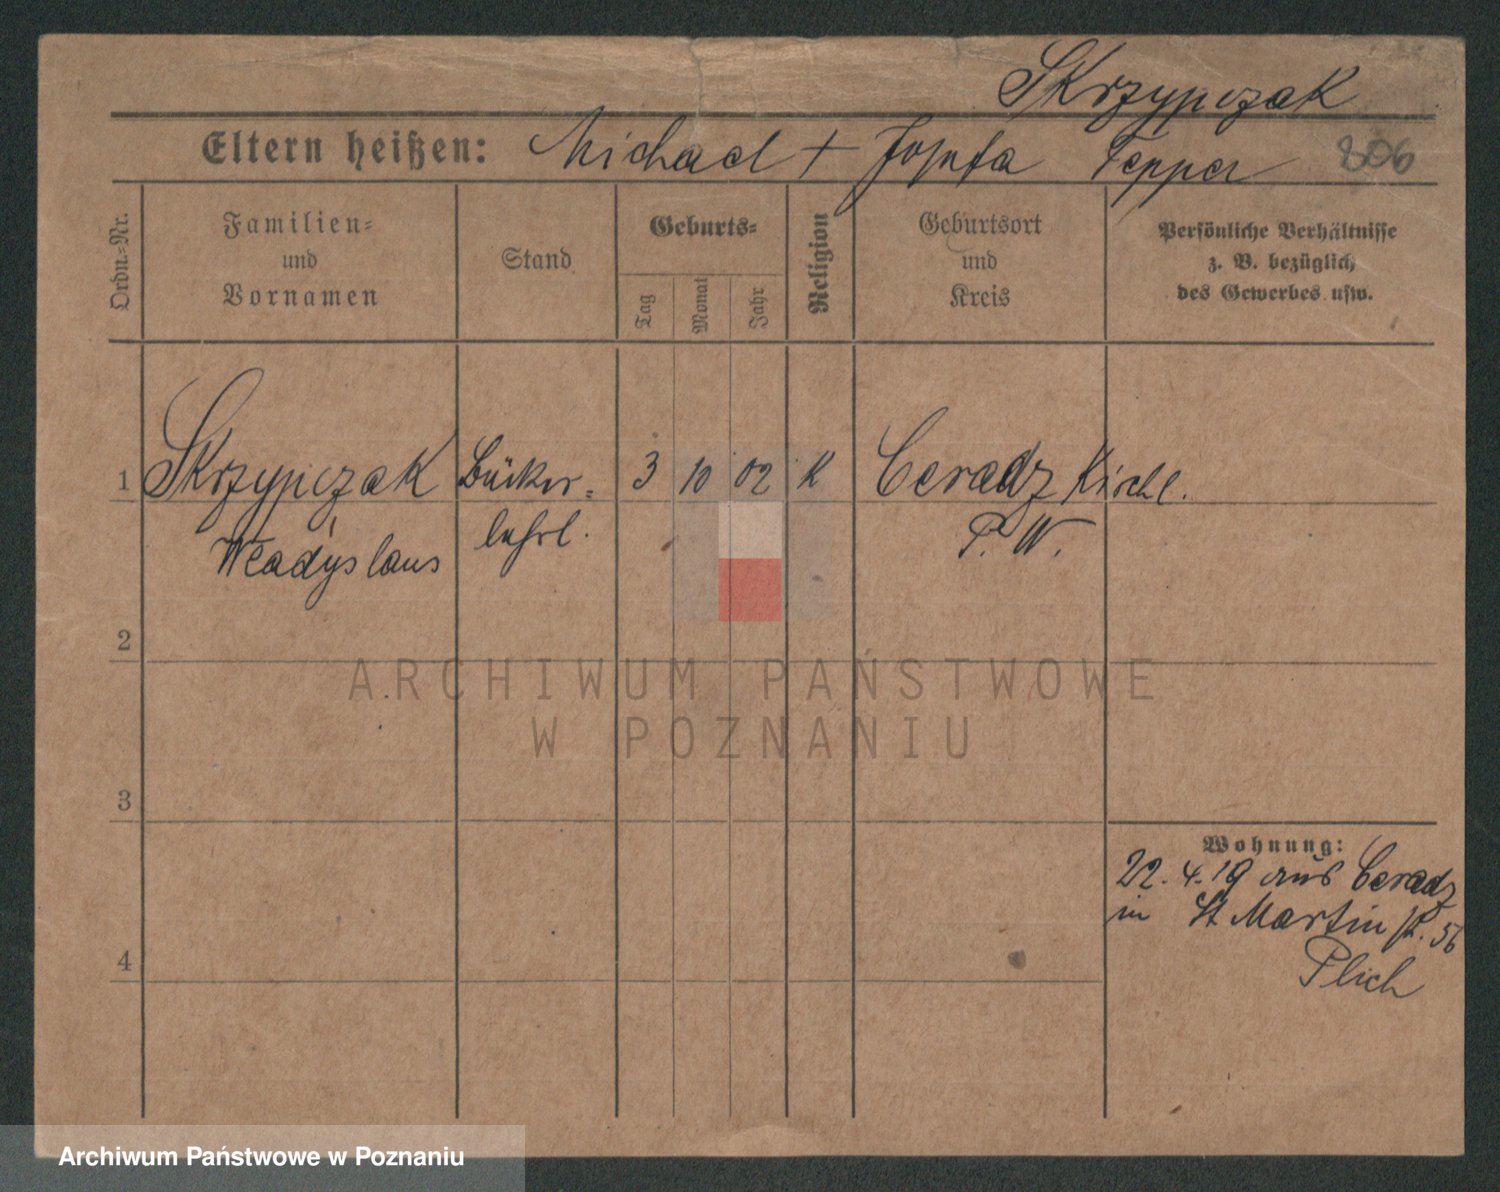 Skrzypczak
Eltern heißen: Michael + Josefa Tepper 806
Ordn.-Nr.
Familien-
und
Vornamen
Stand
Geburts-
Tag
Monat
Jahr
Religion
Geburtsort
und
Kreis
Persönliche Verhältnisse
z. B. bezüglich
des Gewerbes usw.
1 Skrzypczak Bäcker- 3 10 02 K Ceradz Kirchl.
Wladyslaus lehrl. P. W.
2
3
4
Wohnung:
22.4.19 aus Ceradz
in St Martin st. 56
Plich
ARCHIWUM PAŃSTWOWE
W POZNANIU
Archiwum Państwowe w Poznaniu